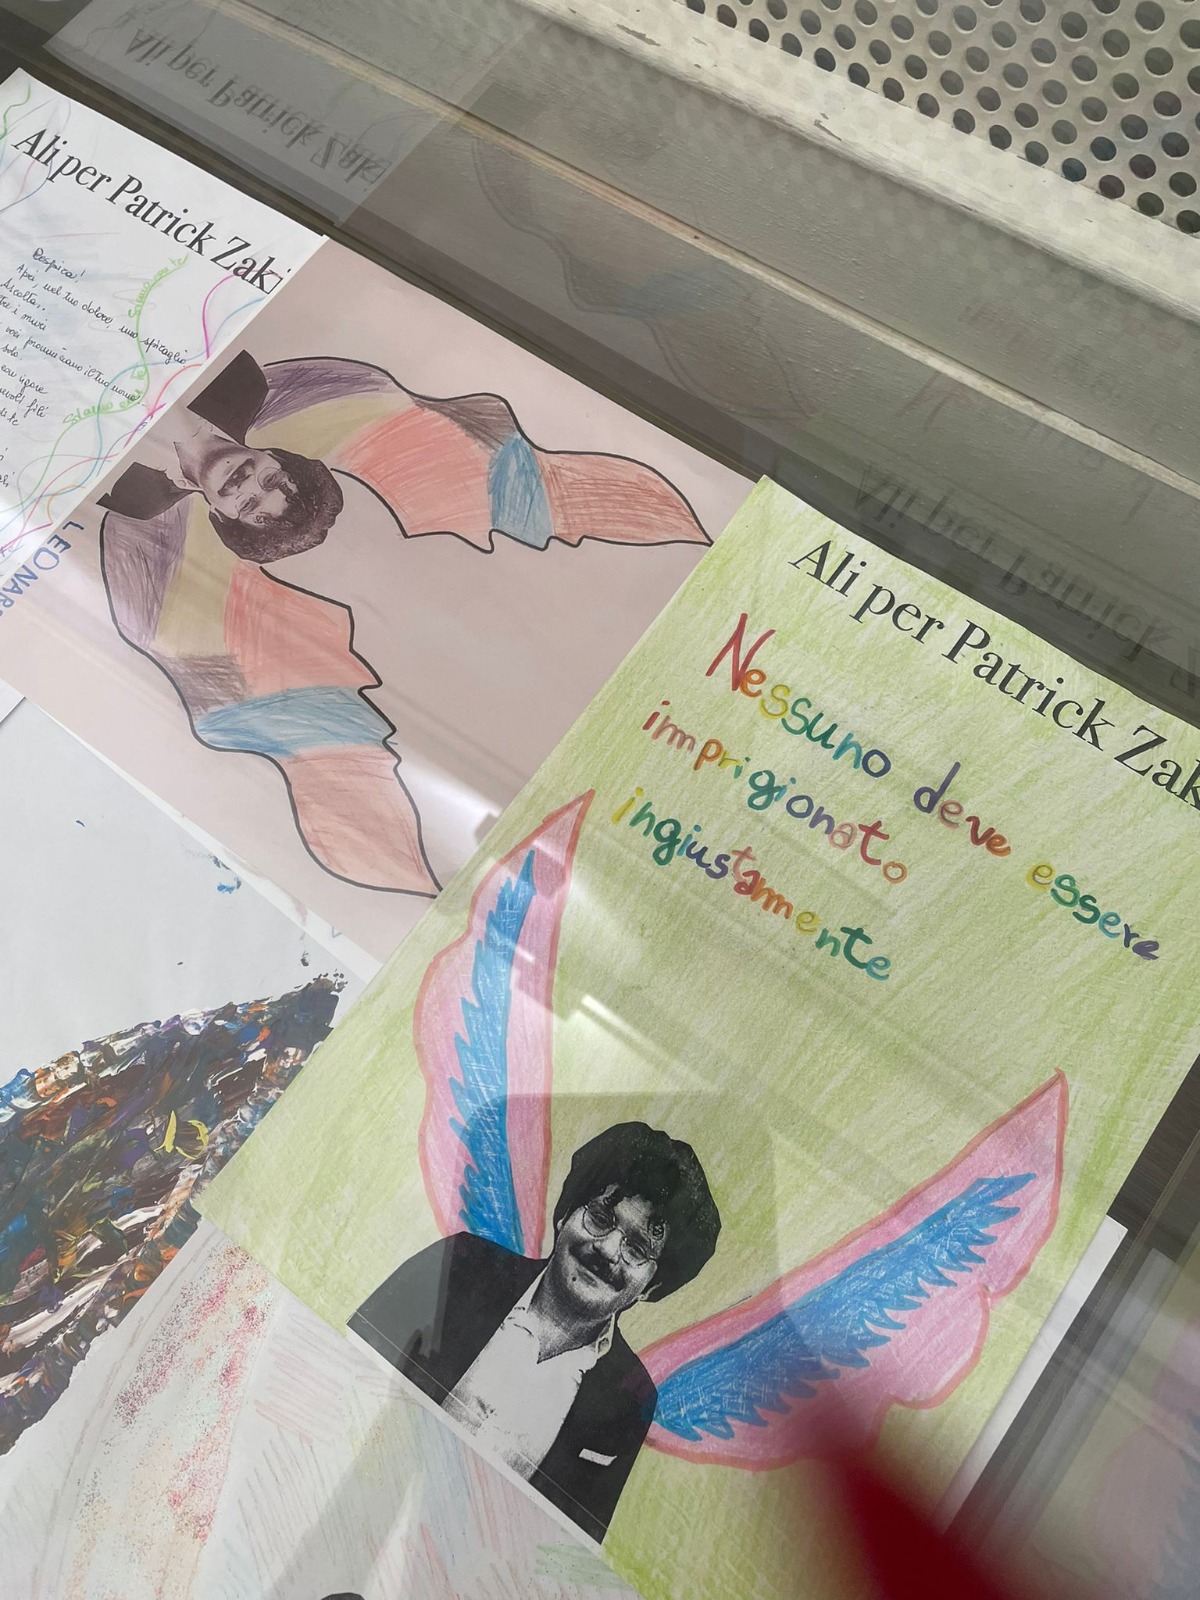 Ali per Patrick Zaki
Respira!
Apri, nel tuo dolore, uno spiraglio
Ascolta..
i muri
voci pronunciano il tuo nome
solo
con vigore
fili
Siamo con te
Siamo con te
LEONAR
Ali per Patrick Zak
Nessuno deve essere
imprigionato
ingiustamente